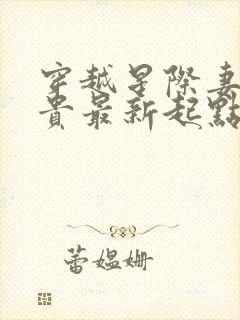 穿越星際妻
貴最新起點
蕾媪姍